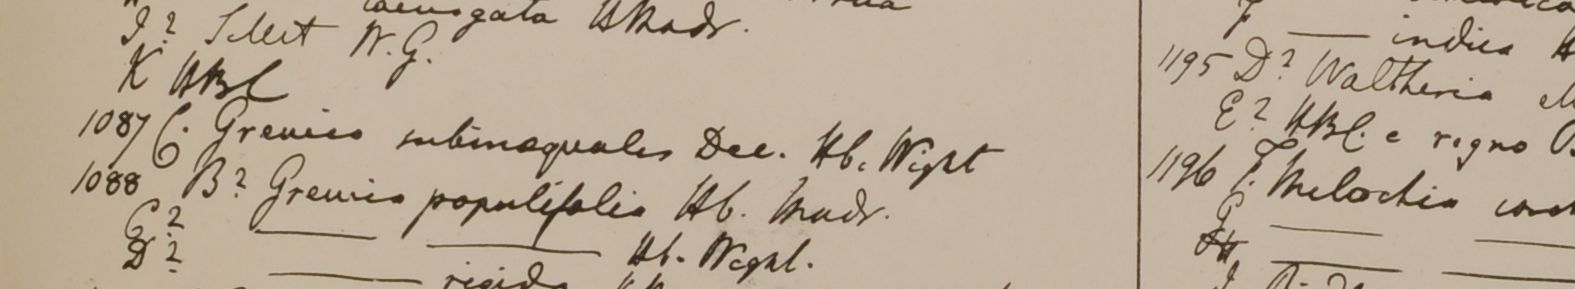 laevigata HMadr.
I? Silhet W.G.
K HBC
1087 C. Grewia subinaequalis Dec. Hb. Wight
1088 B? Grewia populifolia Hb. Madr.
C? ——— ——— Hb. Wight.
D? ——— rigida
F ——— indica
1195 D? Waltheria
E? HBC. e regno
1196 F. Melochia
G ——— ———
H ——— ———
I